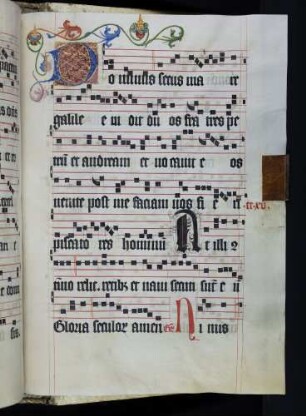 D o minus secus ma re
galile e ui dit du os fra tres pe
trū et andream et uocauit e os
uenite post me faciam uos fi e ri
piscato res hominū At illi
relic. retibꝫ et naui secuti sūt e
Gloria seculoꝝ amen